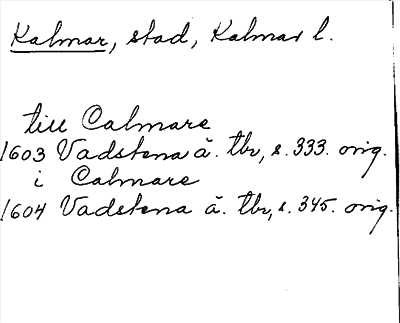 Kalmar, stad, Kalmar l.
till Calmare
1603 Vadstena ä. tbr, s. 333. orig.
i Calmare
1604 Vadstena ä. tbr, s. 345. orig.